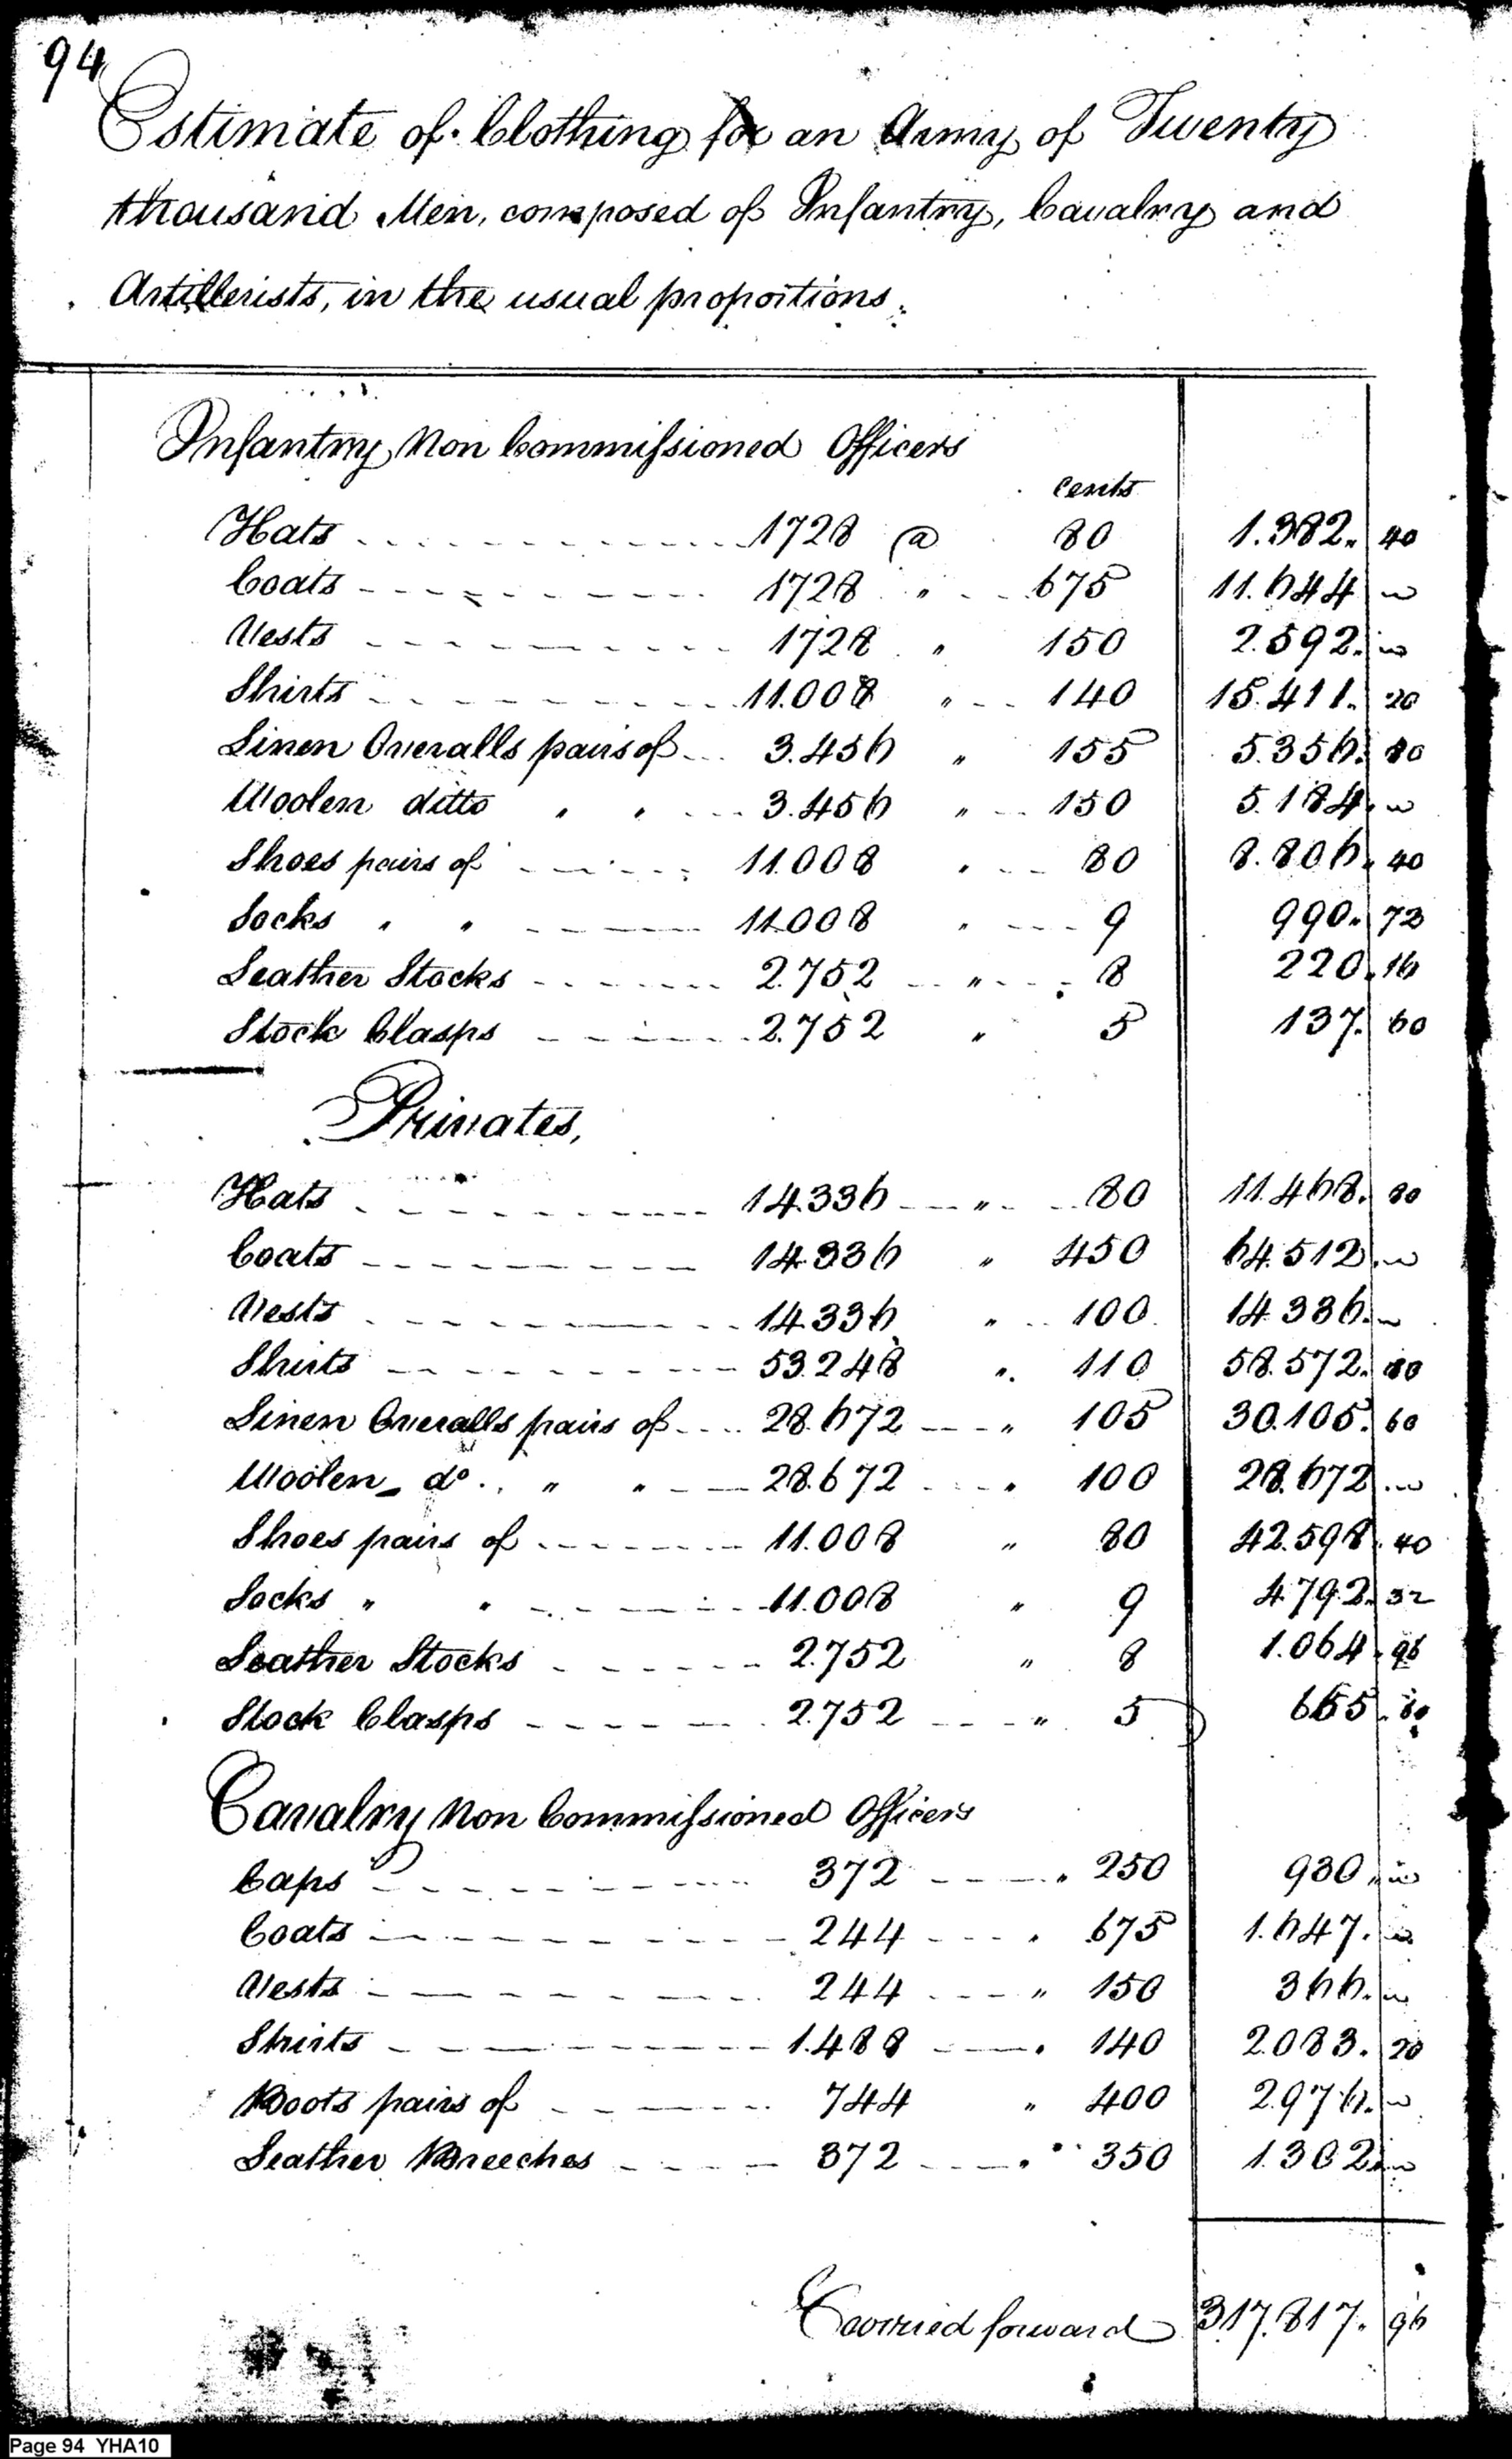 94
Estimate of Clothing for an Army of Twenty
thousand Men, composed of Infantry, Cavalry and
Artillerists, in the usual proportions.
Infantry Non Commissioned Officers
cents
Hats 1728 @ 80 1.382. 40
Coats 1728 " 675 11.644 "
Vests 1728 " 150 2.592. "
Shirts 11.008 " 140 15.411. 20
Linen Overalls pairs of 3.456 " 155 5.356. 80
Woolen ditto " " 3.456 " 150 5.184. "
Shoes pairs of 11.008 " 80 8.806. 40
Socks " " 11.008 " 9 990. 72
Leather Stocks 2.752 " 8 220. 16
Stock Clasps 2.752 " 5 137. 60
Privates,
Hats 14.336 " 80 11.468. 80
Coats 14.336 " 450 64.512. "
Vests 14.336 " 100 14.336. "
Shirts 53.248 " 110 58.572. 80
Linen Overalls pairs of 28.672 " 105 30.105. 60
Woolen do. " " 28.672 " 100 28.672. "
Shoes pairs of 11.008 " 80 42.598. 40
Socks " " 11.008 " 9 4.792. 32
Leather Stocks 2.752 " 8 1.064. 96
Stock Clasps 2.752 " 5 665. 60
Cavalry Non Commissioned Officers
Caps 372 " 250 930. "
Coats 244 " 675 1.647. "
Vests 244 " 150 366. "
Shirts 1.488 " 140 2.083. 20
Boots pairs of 744 " 400 2.976. "
Leather Breeches 372 " 350 1.302. "
Carried forward 317.817. 96
Page 94 YHA10